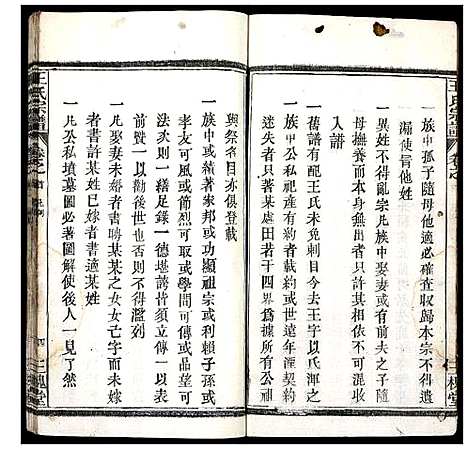 王氏宗譜
卷之
三槐堂
一族中孤子隨母他適必確查收歸本宗不得遺
漏使冒他姓
一異姓不得亂宗凡族中娶妻或有前夫之子隨
母撫養而本身無出者只許其相依不得收
入譜
一舊譜有配王氏未免刺目今去王字以氏渾之
一族中凡公私祀產有約者載約或世遠年湮契約
迷失者只共載某處田若干四界爲據所有公祠
與祭名目亦俱登載
一族中或續有著家邦或功顯祖宗或利賴子孫或
孝友可風或節烈可取或學問可傳或藝術可
法求則一一詳足錄一德堪誇皆須立傳一以表
前賢一以勸後世也否則不得濫列
一凡娶妻未婚者書聘某某之女女字而未嫁
者書許某姓已嫁者書適某姓
一凡公私墳墓圖必著圖解使後人一見了然
王氏宗譜
卷之首
四
三槐堂